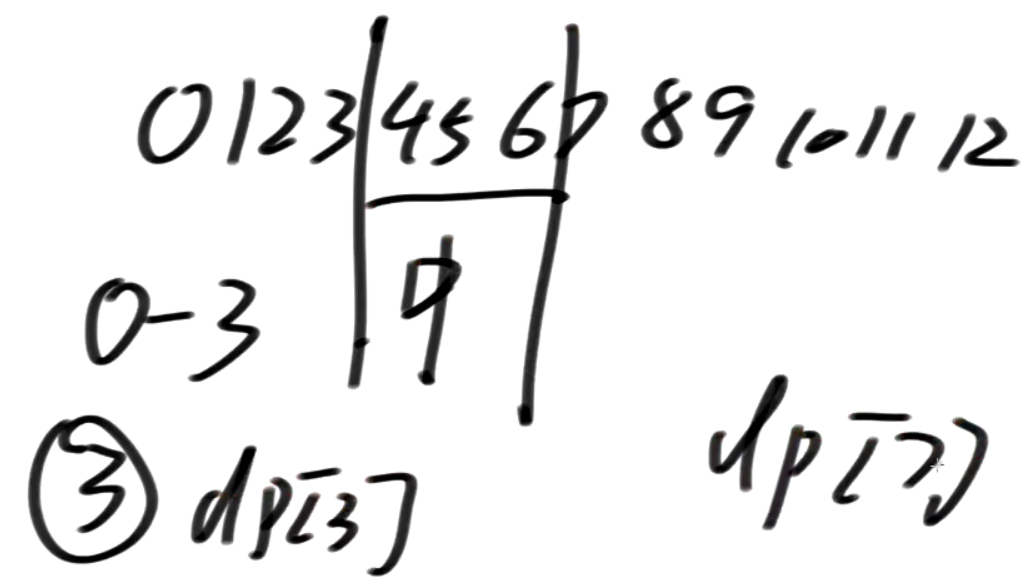 0123 4567 89 10 11 12
0-3 中
③ dp[3] dp[7]